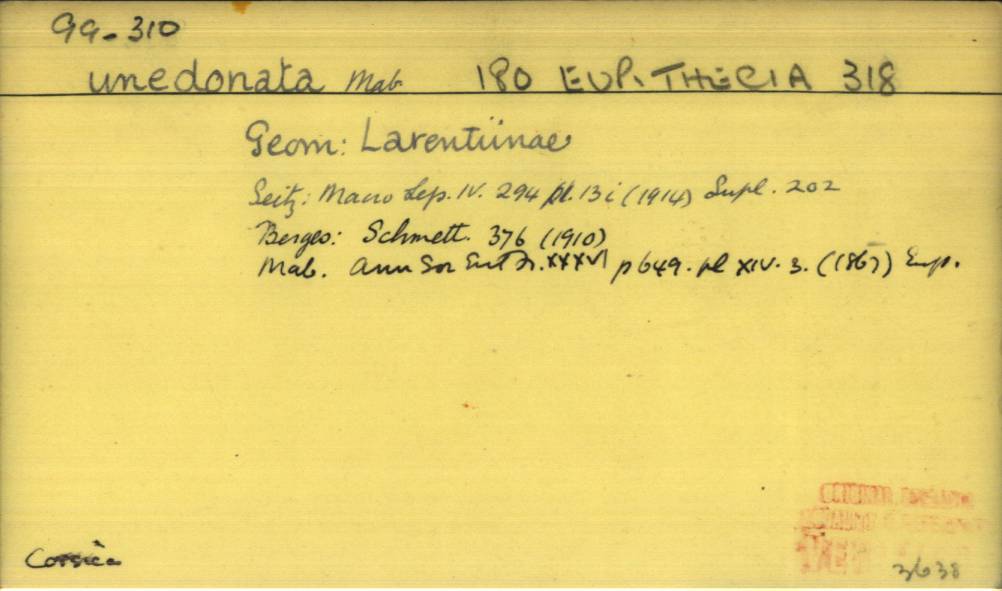 99-310
unedonata Mab. 180 EUPITHECIA 318
Geom: Larentiinae
Seitz: Macro Lep. IV. 294 pl. 13 i (1914) Supl. 202
Berges: Schmett. 376 (1910)
Mab. Ann Soc Ent Fr. XXXVI p 649. pl XIV. 3. (1867) Eup.
Corsica
3638